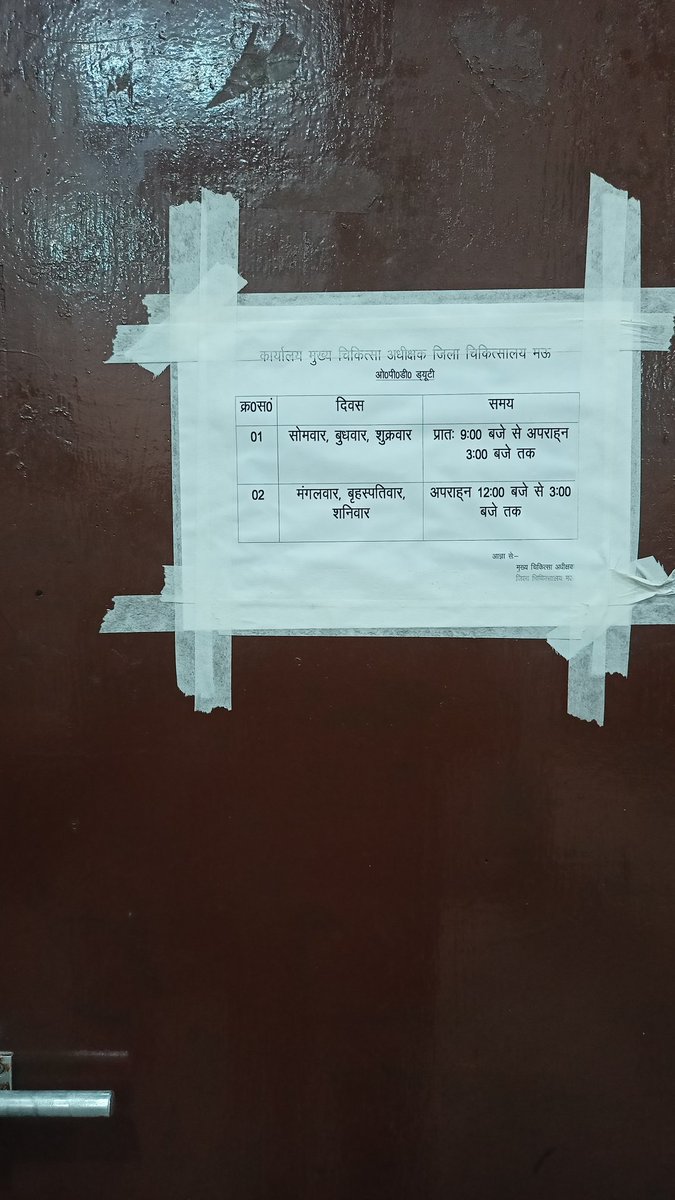 कार्यालय मुख्य चिकित्सा अधीक्षक जिला चिकित्सालय मऊ
ओ0पी0डी0 ड्यूटी
क्र0सं0 दिवस समय
01 सोमवार, बुधवार, शुक्रवार प्रातः 9:00 बजे से अपराह्न
3:00 बजे तक
02 मंगलवार, बृहस्पतिवार, अपराह्न 12:00 बजे से 3:00
शनिवार बजे तक
आज्ञा से:-
मुख्य चिकित्सा अधीक्षक
जिला चिकित्सालय मऊ